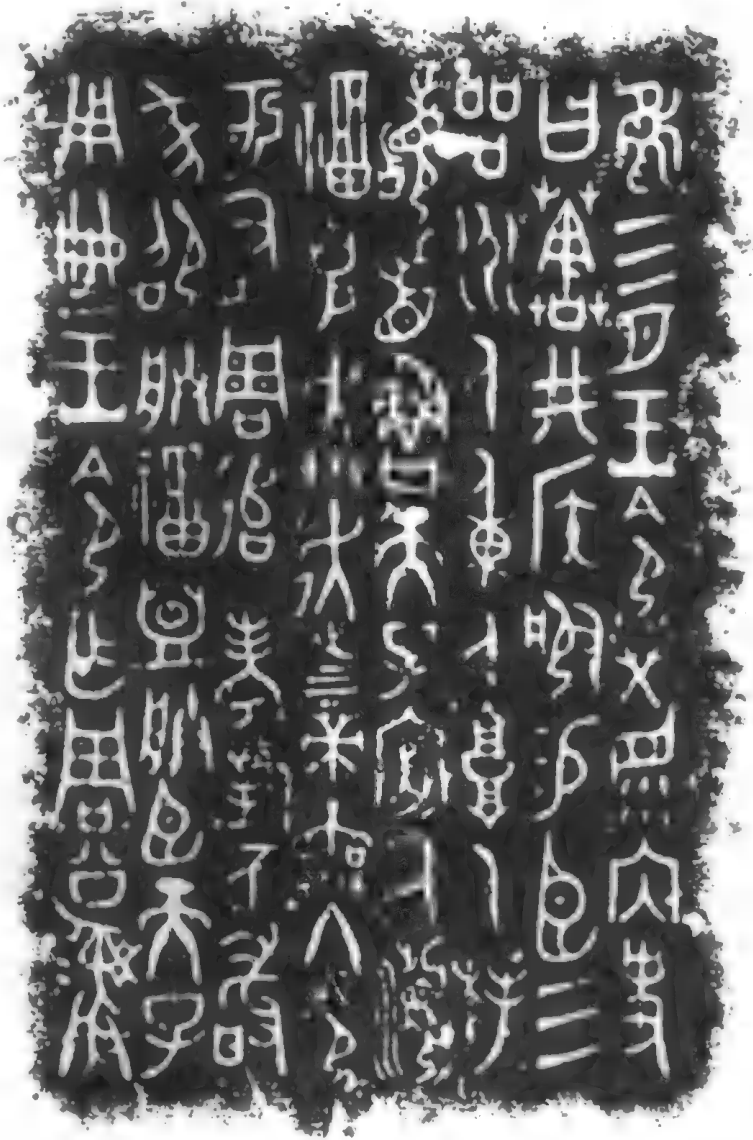 隹三月王令𤇾眔內史
曰𦵯井侯服易臣三
品州人重人𩫏人拜
稽首魯天子𢓊厥瀕
福克奔走上下帝無冬令
于有周追考對不敢
㒸邵朕福盟朕臣天子
用冊王令乍周公彝